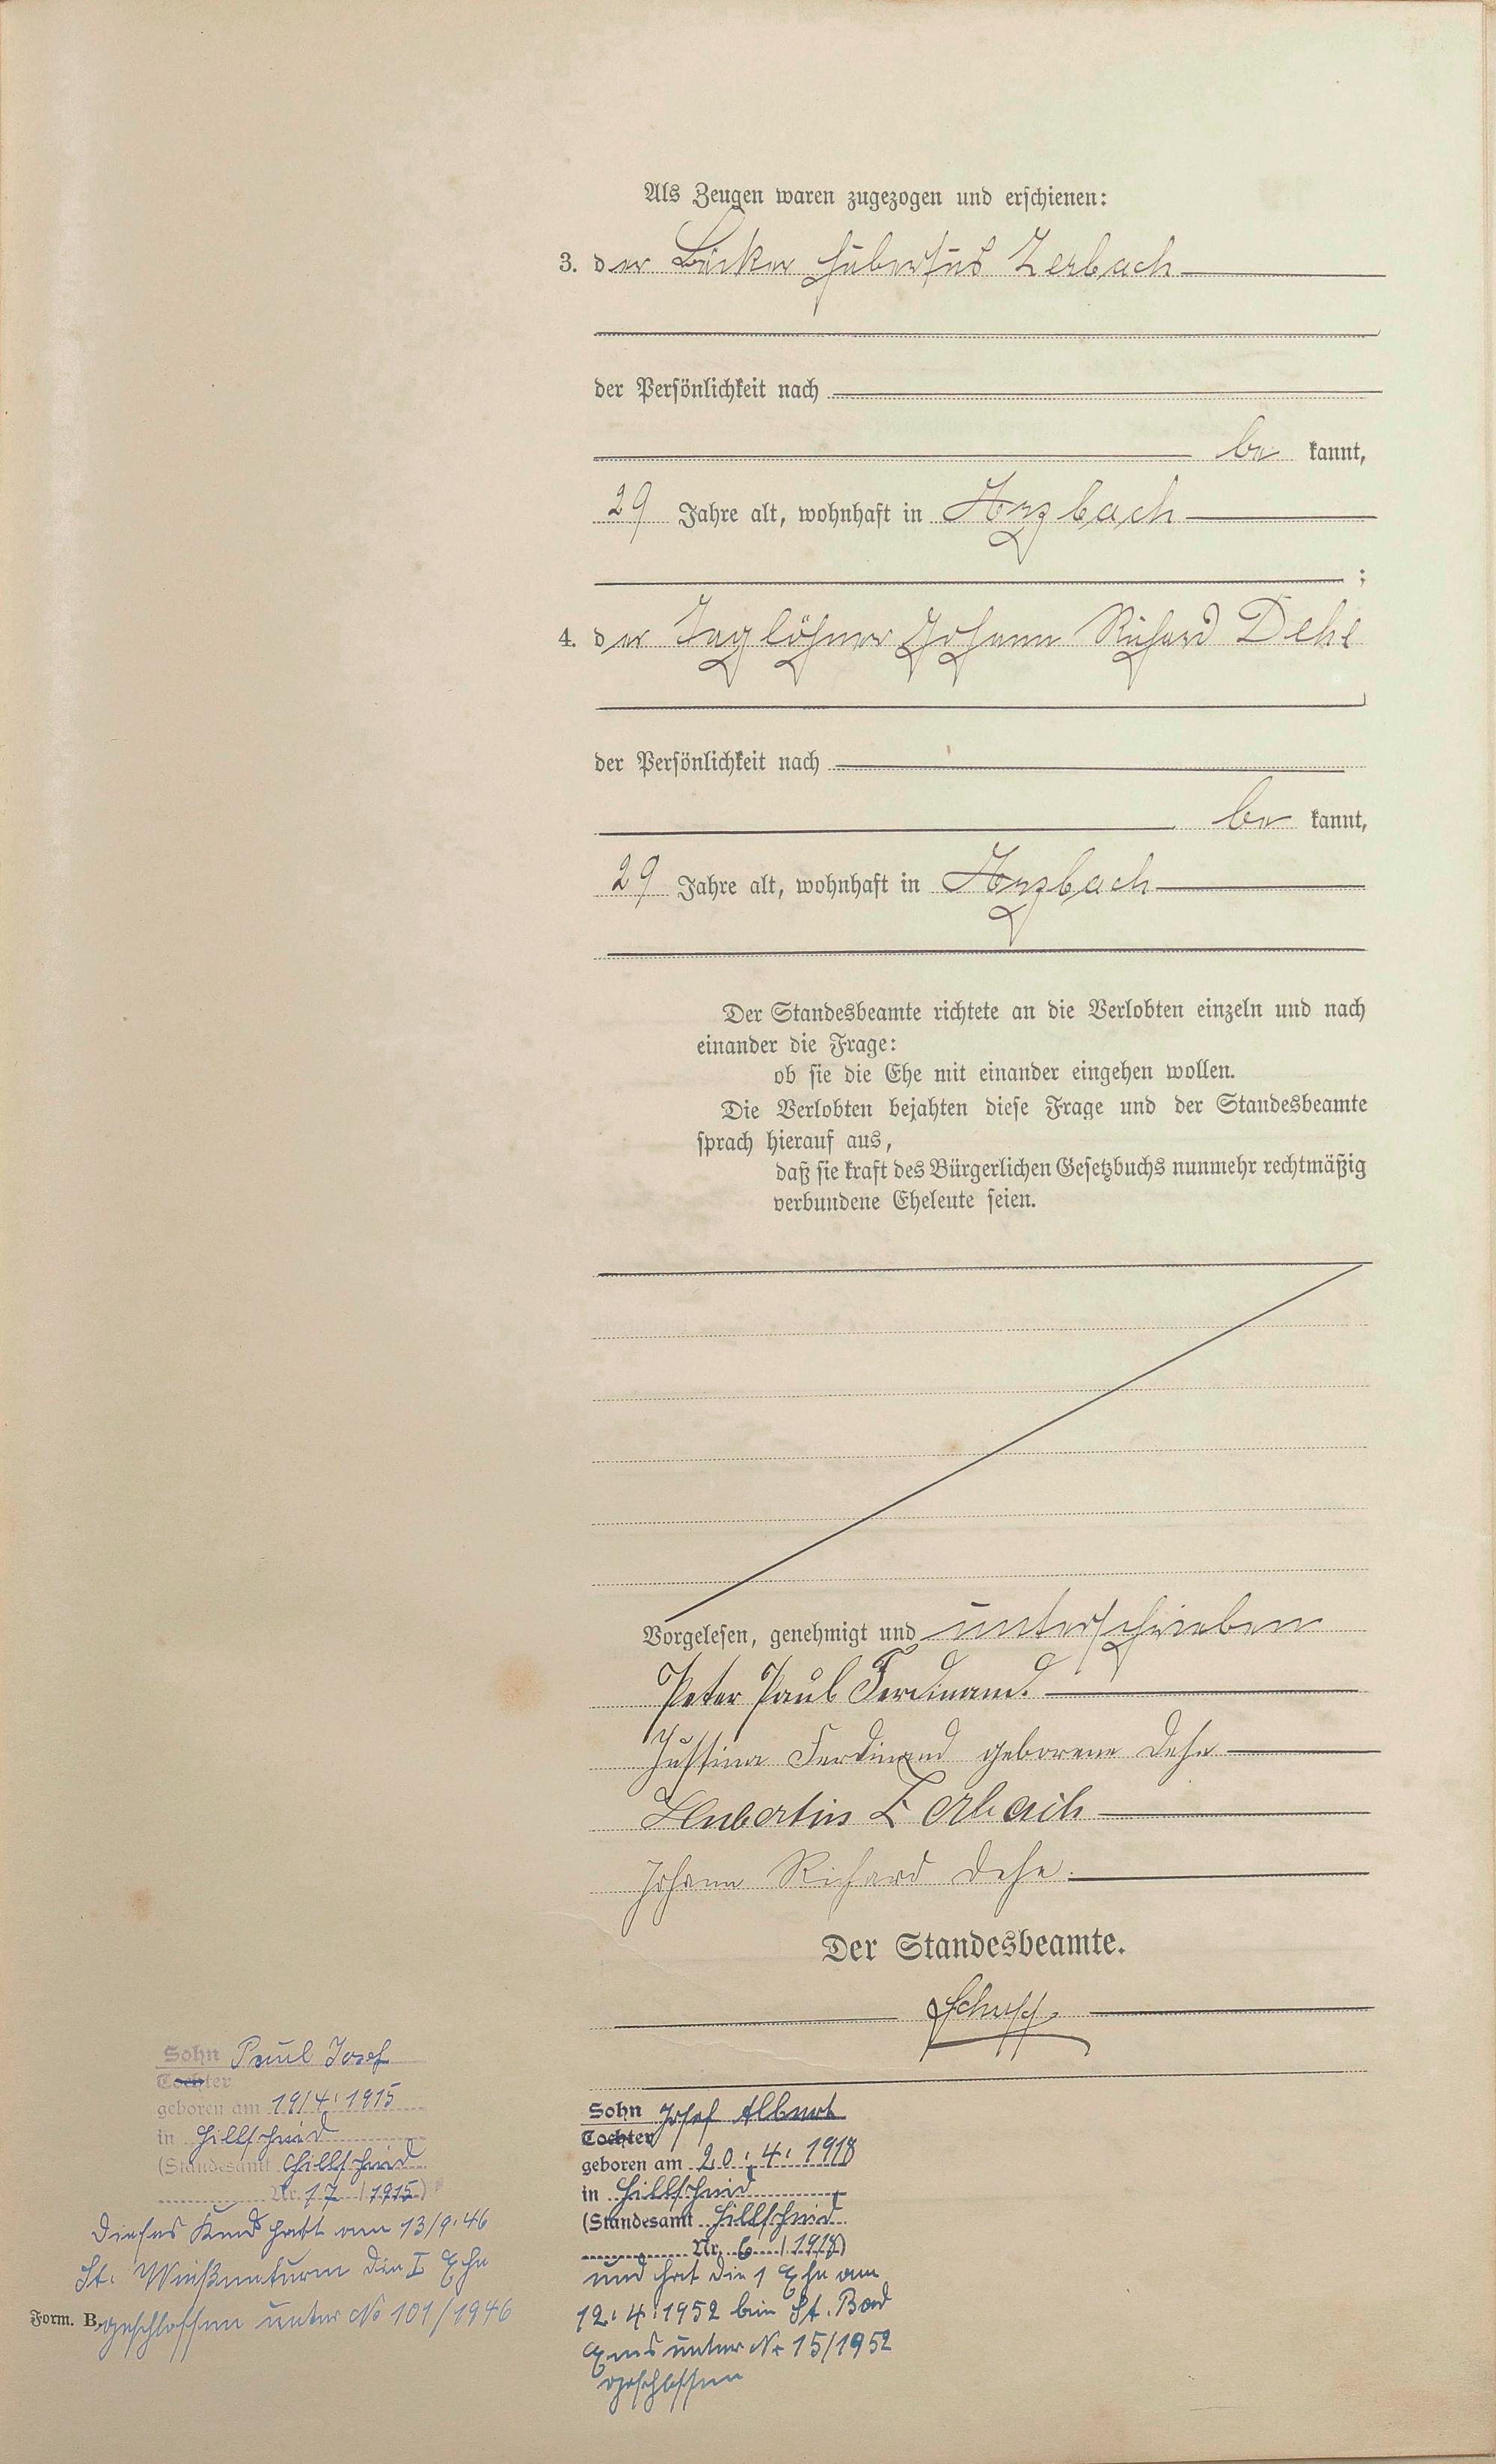 Als Zeugen waren zugezogen und erschienen:
3. der Bäcker Hubertus Zerbach
der Persönlichkeit nach
be kannt,
29 Jahre alt, wohnhaft in Arzbach
;
4. der Taglöhner Johann Richard Dehe
der Persönlichkeit nach
be kannt,
29 Jahre alt, wohnhaft in Arzbach
Der Standesbeamte richtete an die Verlobten einzeln und nach
einander die Frage:
ob sie die Ehe mit einander eingehen wollen.
Die Verlobten bejahten diese Frage und der Standesbeamte
sprach hierauf aus,
daß sie kraft des Bürgerlichen Gesetzbuchs nunmehr rechtmäßig
verbundene Eheleute seien.
Vorgelesen, genehmigt und unterschrieben
Peter Paul Ferdinand.
Justina Ferdinand geborene Dehe
Hubertus Zerbach
Johann Richard Dehe.
Der Standesbeamte.
Sohn Paul Josef
Tochter
geboren am 19/4. 1915
in Hillscheid
(Standesamt Hillscheid
Nr. 17 / 1915)
Dieses Kind hatt am 13/9. 46
St. Weißenturm die I Ehe
Form. B. geschlossen unter No 101/1946
Sohn Josef Albert
Tochter
geboren am 20. 4. 1918
in Hillscheid
(Standesamt Hillscheid
Nr. 6 / 1918)
und hat die 1 Ehe am
12. 4. 1952 beim St. Bad
Ems unter Nr 15/1952
geschlossen